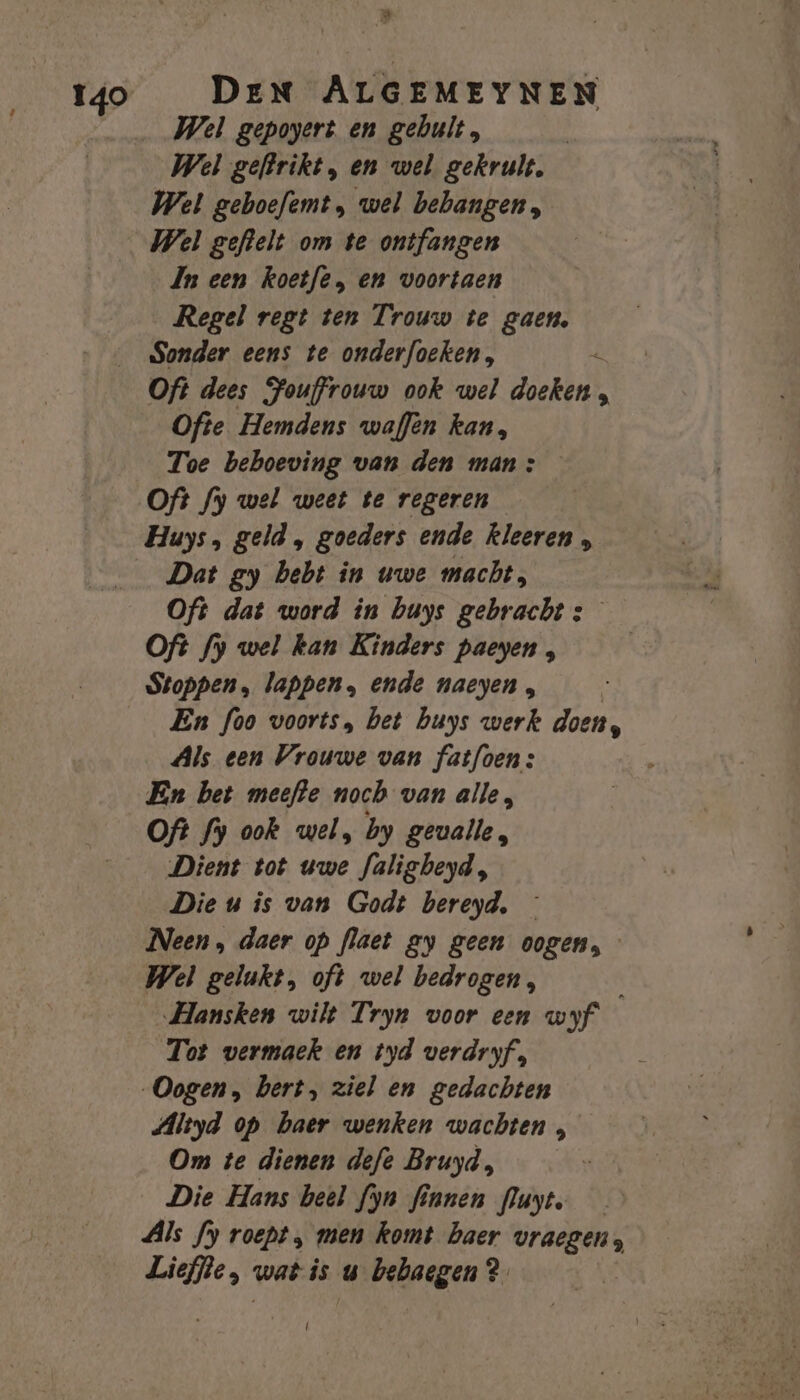 140 DEN ALGEMEYNEN
Wel gepoyert en gehult,
Wel geſtrikt, en wel gekrult.
Wel geboeſemt, wel behangen,
Wel geſtelt om te ontfangen
In een koetſe, en voortaen
Regel regt ten Trouw te gaen.
Sonder eens te onderſoeken,
Oft dees Jouffrouw ook wel doeken,
Ofte Hemdens waſſen kan,
Toe behoeving van den man:
Oft ſy wel weet te regeren
Huys, geld, goeders ende kleeren,
Dat gy hebt in uwe macht,
Oft dat word in huys gebracht:
Oft ſy wel kan Kinders paeyen,
Stoppen, lappen, ende naeyen,
En ſoo voorts, het huys werk doen,
Als een Vrouwe van fatſoen:
En het meeſte noch van alle,
Oft ſy ook wel, by gevalle,
Dient tot uwe ſaligheyd,
Die u is van Godt bereyd.
Neen, daer op ſlaet gy geen oogen,
Wel gelukt, oft wel bedrogen,
Hansken wilt Tryn voor een wyf
Tot vermaek en tyd verdryf,
Oogen, hert, ziel en gedachten
Altyd op haer wenken wachten,
Om te dienen deſe Bruyd,
Die Hans heel ſyn ſinnen ſluyt.
Als ſy roept, men komt haer vraegen,
Liefſte, wat is u behaegen?